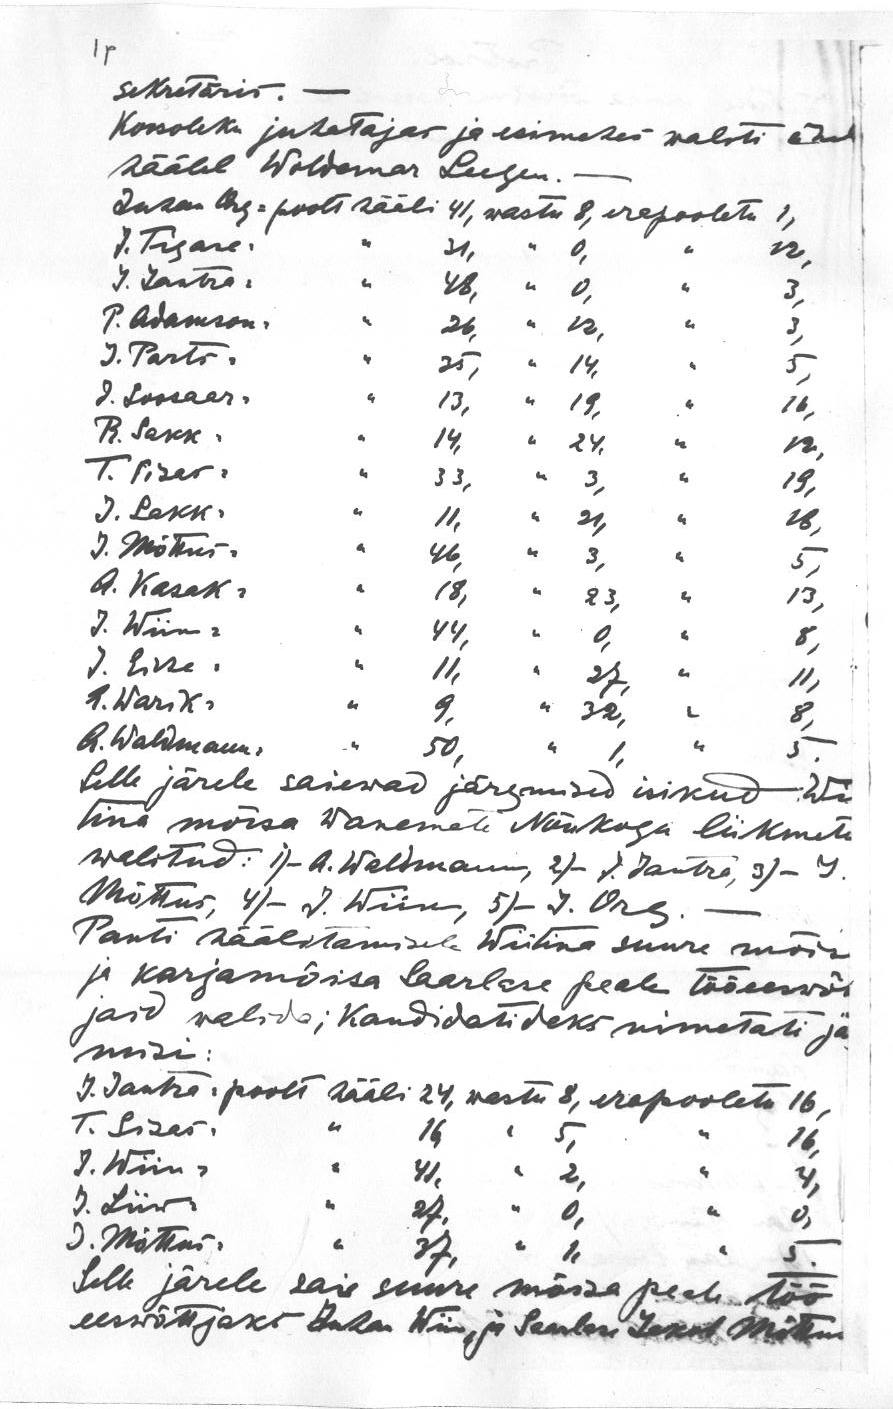 sekretäris. —
Koosoleku juhatajas ja esimehes walsti
häälel Woldemar Leegen. —
Juhan Org = poolt hääli 41, wastu 8, erapooletu 1,
J. Tigane = " 31, " 0, " 12,
J. Jantra = " 48, " 0, " 3,
P. Adamson = " 26, " 12, " 3,
J. Parts = " 25, " 14, " 5,
J. Soosaar = " 13, " 19, " 16,
R. Sakk = " 14, " 24, " 12,
T. Sisas = " 33, " 3, " 19,
J. Lakk = " 11, " 21, " 18,
J. Mõttus = " 46, " 3, " 5,
A. Kasak = " 18, " 23, " 13,
J. Wiin = " 44, " 0, " 8,
J. " 11, " 27, " 11,
R. Warik = " 9, " 32, " 8,
A. Waldmann = " 50, " 1, " 5.
Selle järele saiewad järgmised isikud Wii
tina mõisa Wanemate Nõukogu liikmete
walitud: 1)- A. Waldmann, 2)- J. Jantra, 3)- J.
Mõttus, 4)- J. Wiin, 5)- J. Org. —
Panti häälitamisele Wiitina suure mõis
ja karjamõisa Saarlase peale tööeeswõt
jaid walida; Kandidatideks nimetati jä
misi:
J. Jantra = poolt hääli 24, wastu 8, erapooletu 16,
T. Sisas = " 16, " 5, " 16,
J. Wiin = " 41, " 2, " 4,
J. Liiw = " 27, " 0, " 0,
J. Mõttus = " 37, " 1, " 5.
Selle järele saie suure mõisa peale töö
eeswõttjaks Juhan Wiin, ja Saarlase Jakob Mõttus